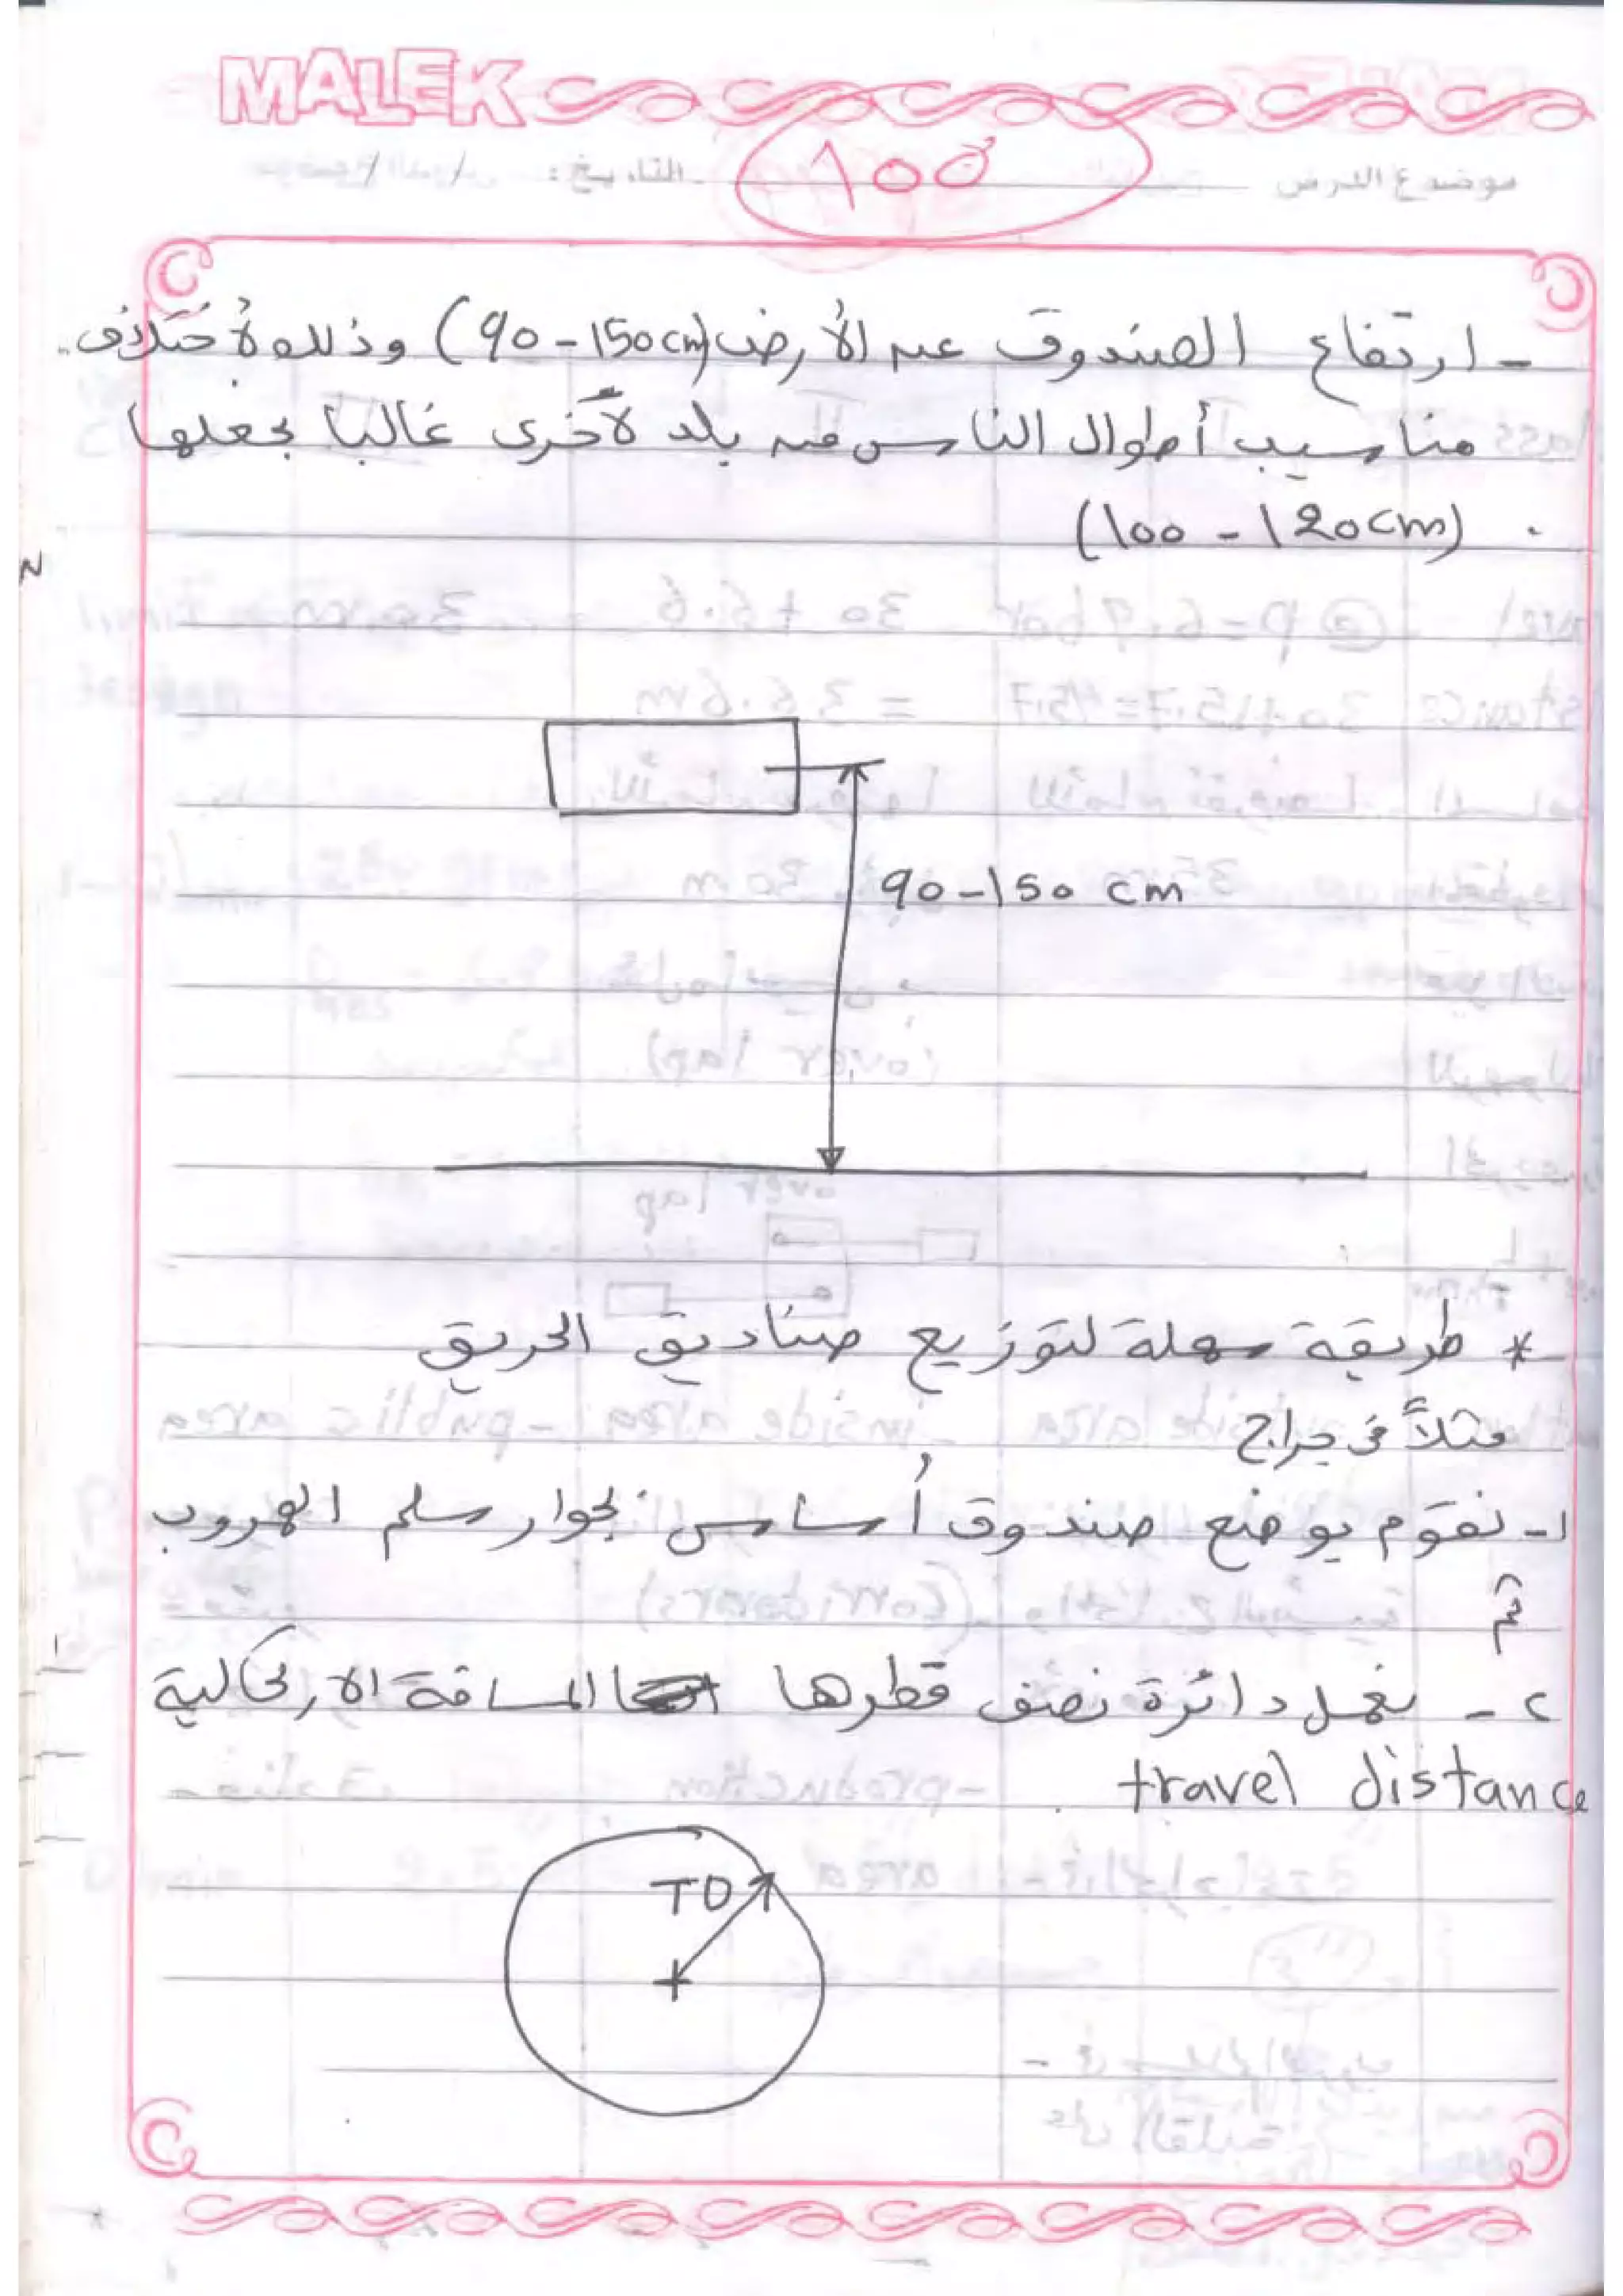 MALEK
موضوع الدرس
التاريخ :
١٥٥
- ارتفاع الصندوق عن الأرض (90-150cm) وذلك لأختلاف
مناسيب أطوال الناس من بلد لأخرى غالبا نجعلها
(100-120cm) .
90-150 cm
* طريقة سهلة لتوزيع صناديق الحريق
مثلاً فى جراج
١- نقوم بوضع صندوق أساسى بجوار سلم الهروب
ثم
٢- نعمل دائرة نصف قطرها المسافة الارتحالية
travel distance .
TD